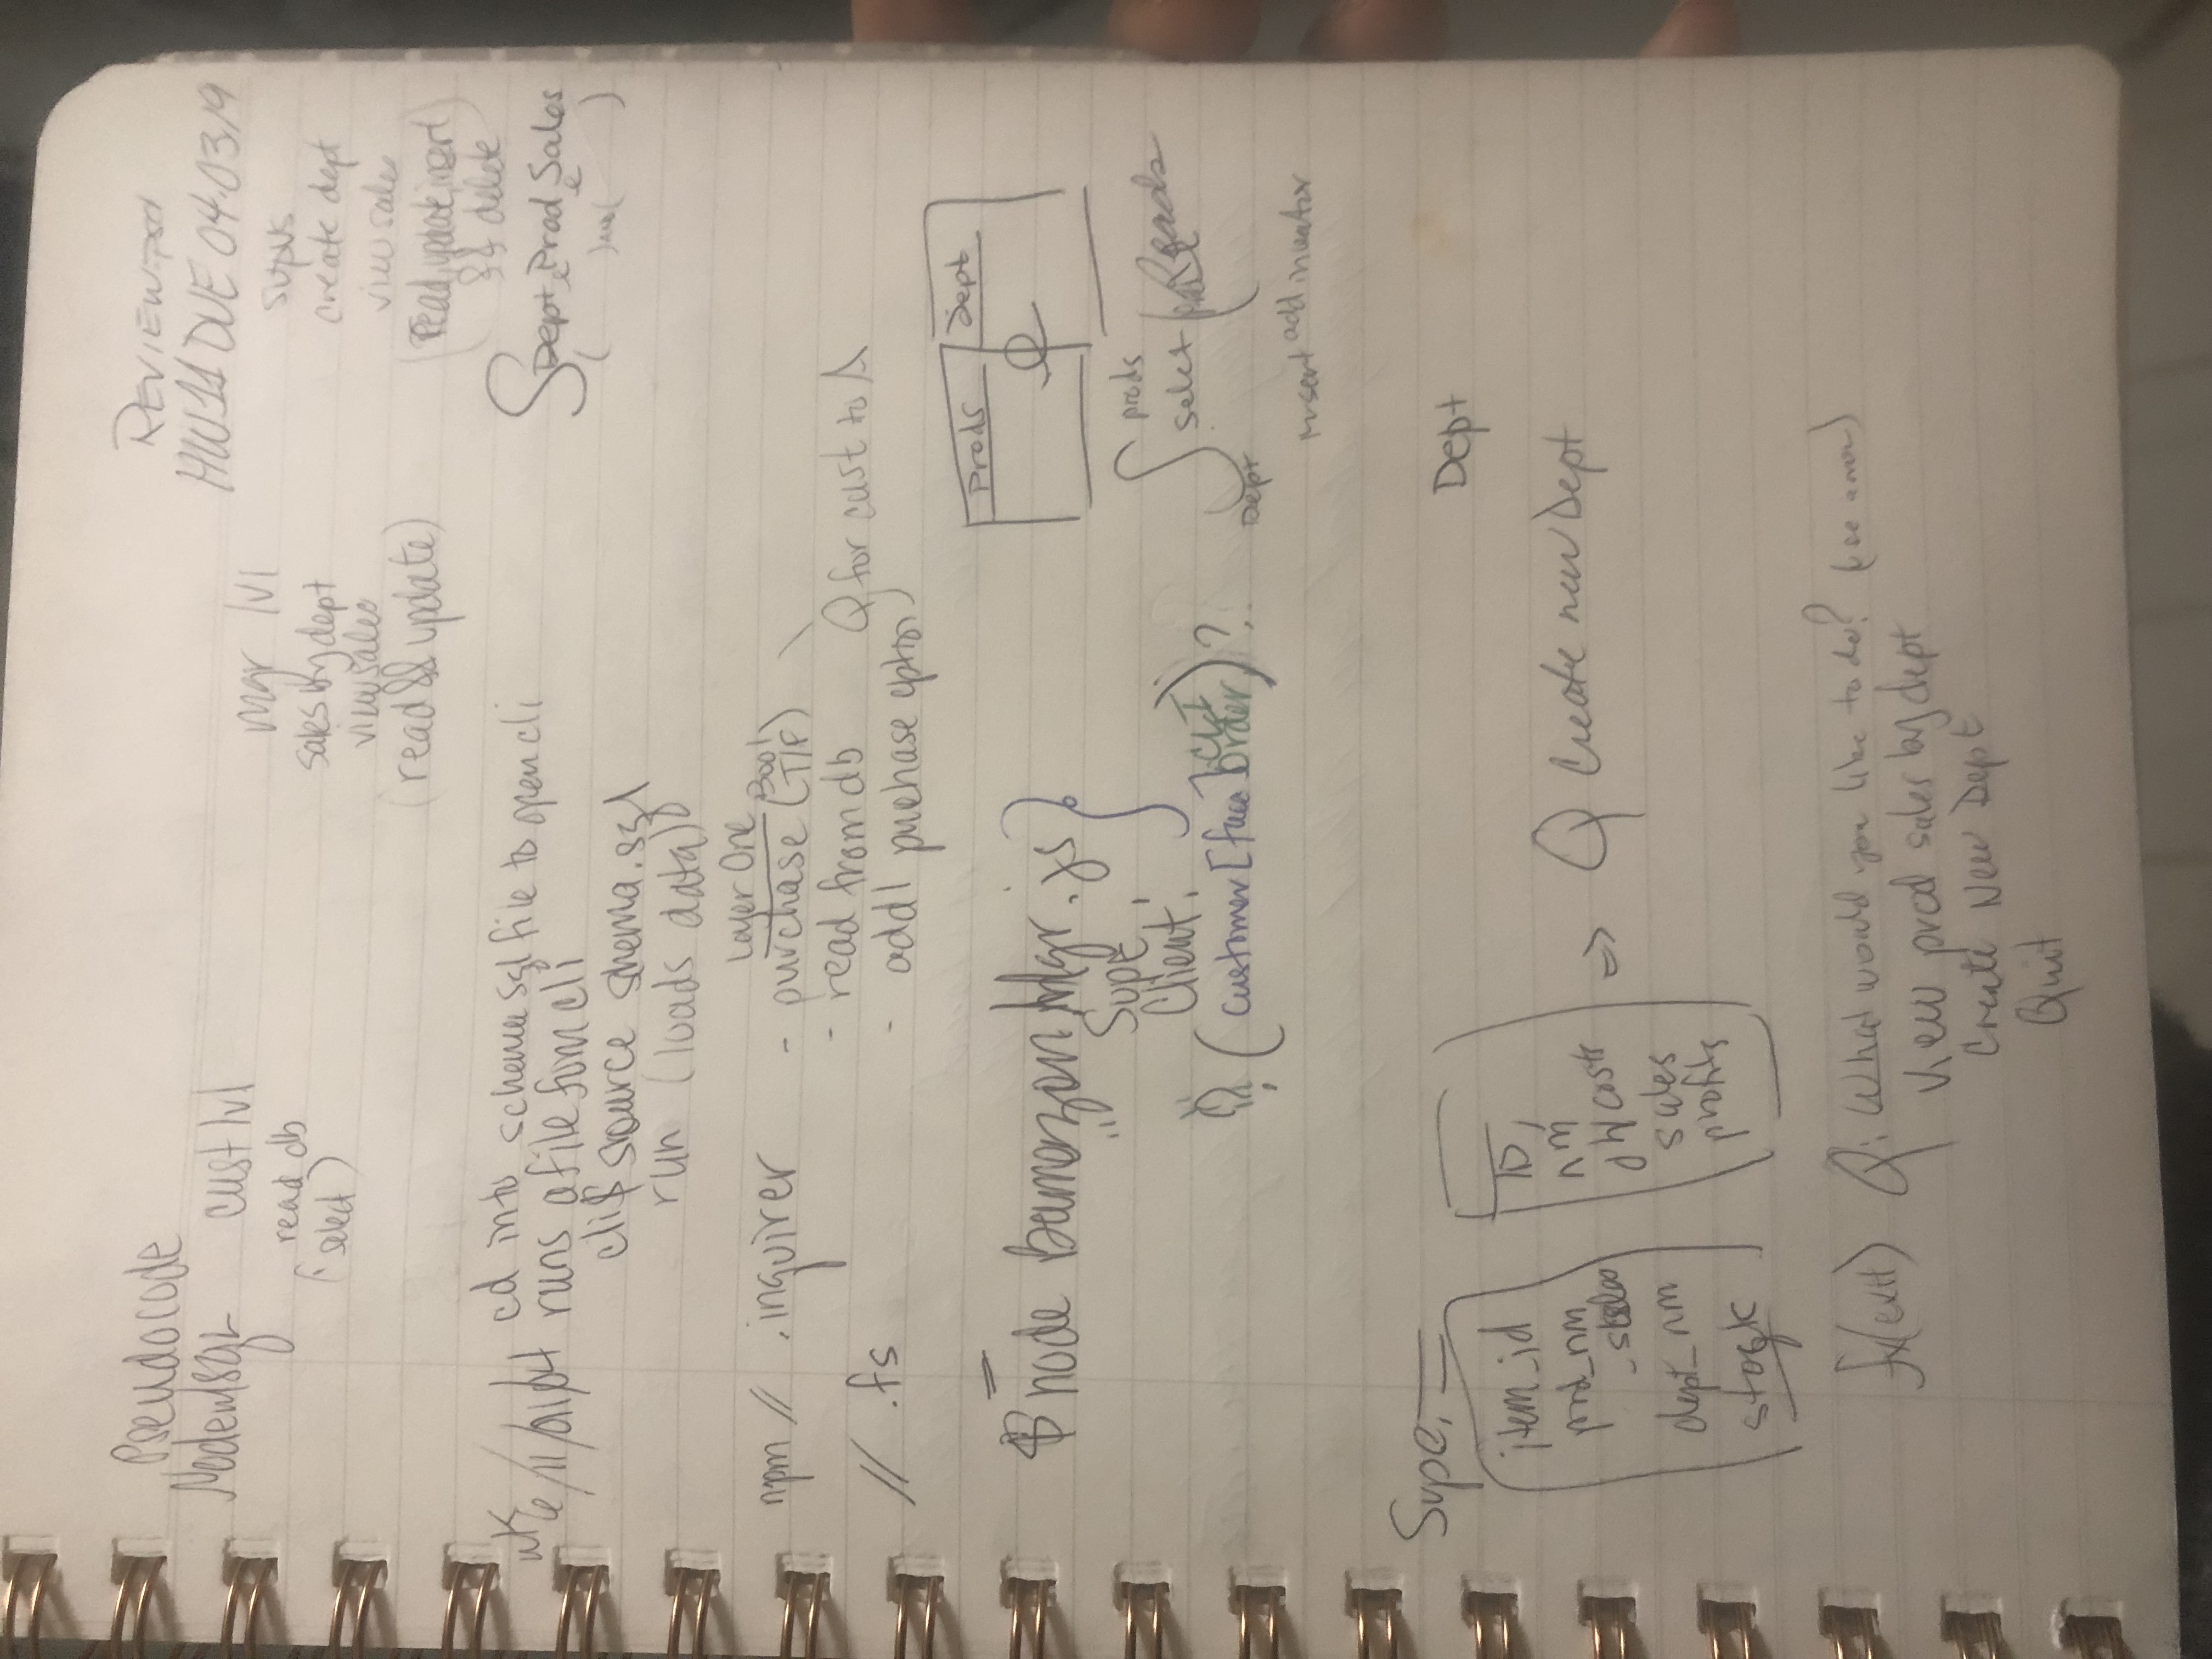 Pseudocode
REVIEW.psd
HW11 DUE 04.03.19
NodemySQL
cust lvl
read db
(select)
mgr lvl
sales by dept
view sales
(read && update)
supvs
create dept
view sales
(Read, update, insert
&& delete
Dept Prod Sales
wk 6/11/01/04
cd into schema sql file to open cli
runs a file from cli
cli$ source schema.sql
run (loads data)
npm // .inquirer
// .fs
Layer One
- purchase (Bool T/F)
- read from db
- addl puchase option
Q for cust to A
$ node Bamazon Mgr.js
" Supe.
Client.
(customer[face] CLI Order)?
Prods
Dept
prods
select
Reads
Dept
Insert add
Supe.
item_id
prd_nm
_sales
dept_nm
stock
ID,
nm
costs
sales
profits
=> Q Create new Dept
Dept
fx(exit) Q: What would you like to do? (use arrow)
View prod sales by dept
Create New Dept
Quit